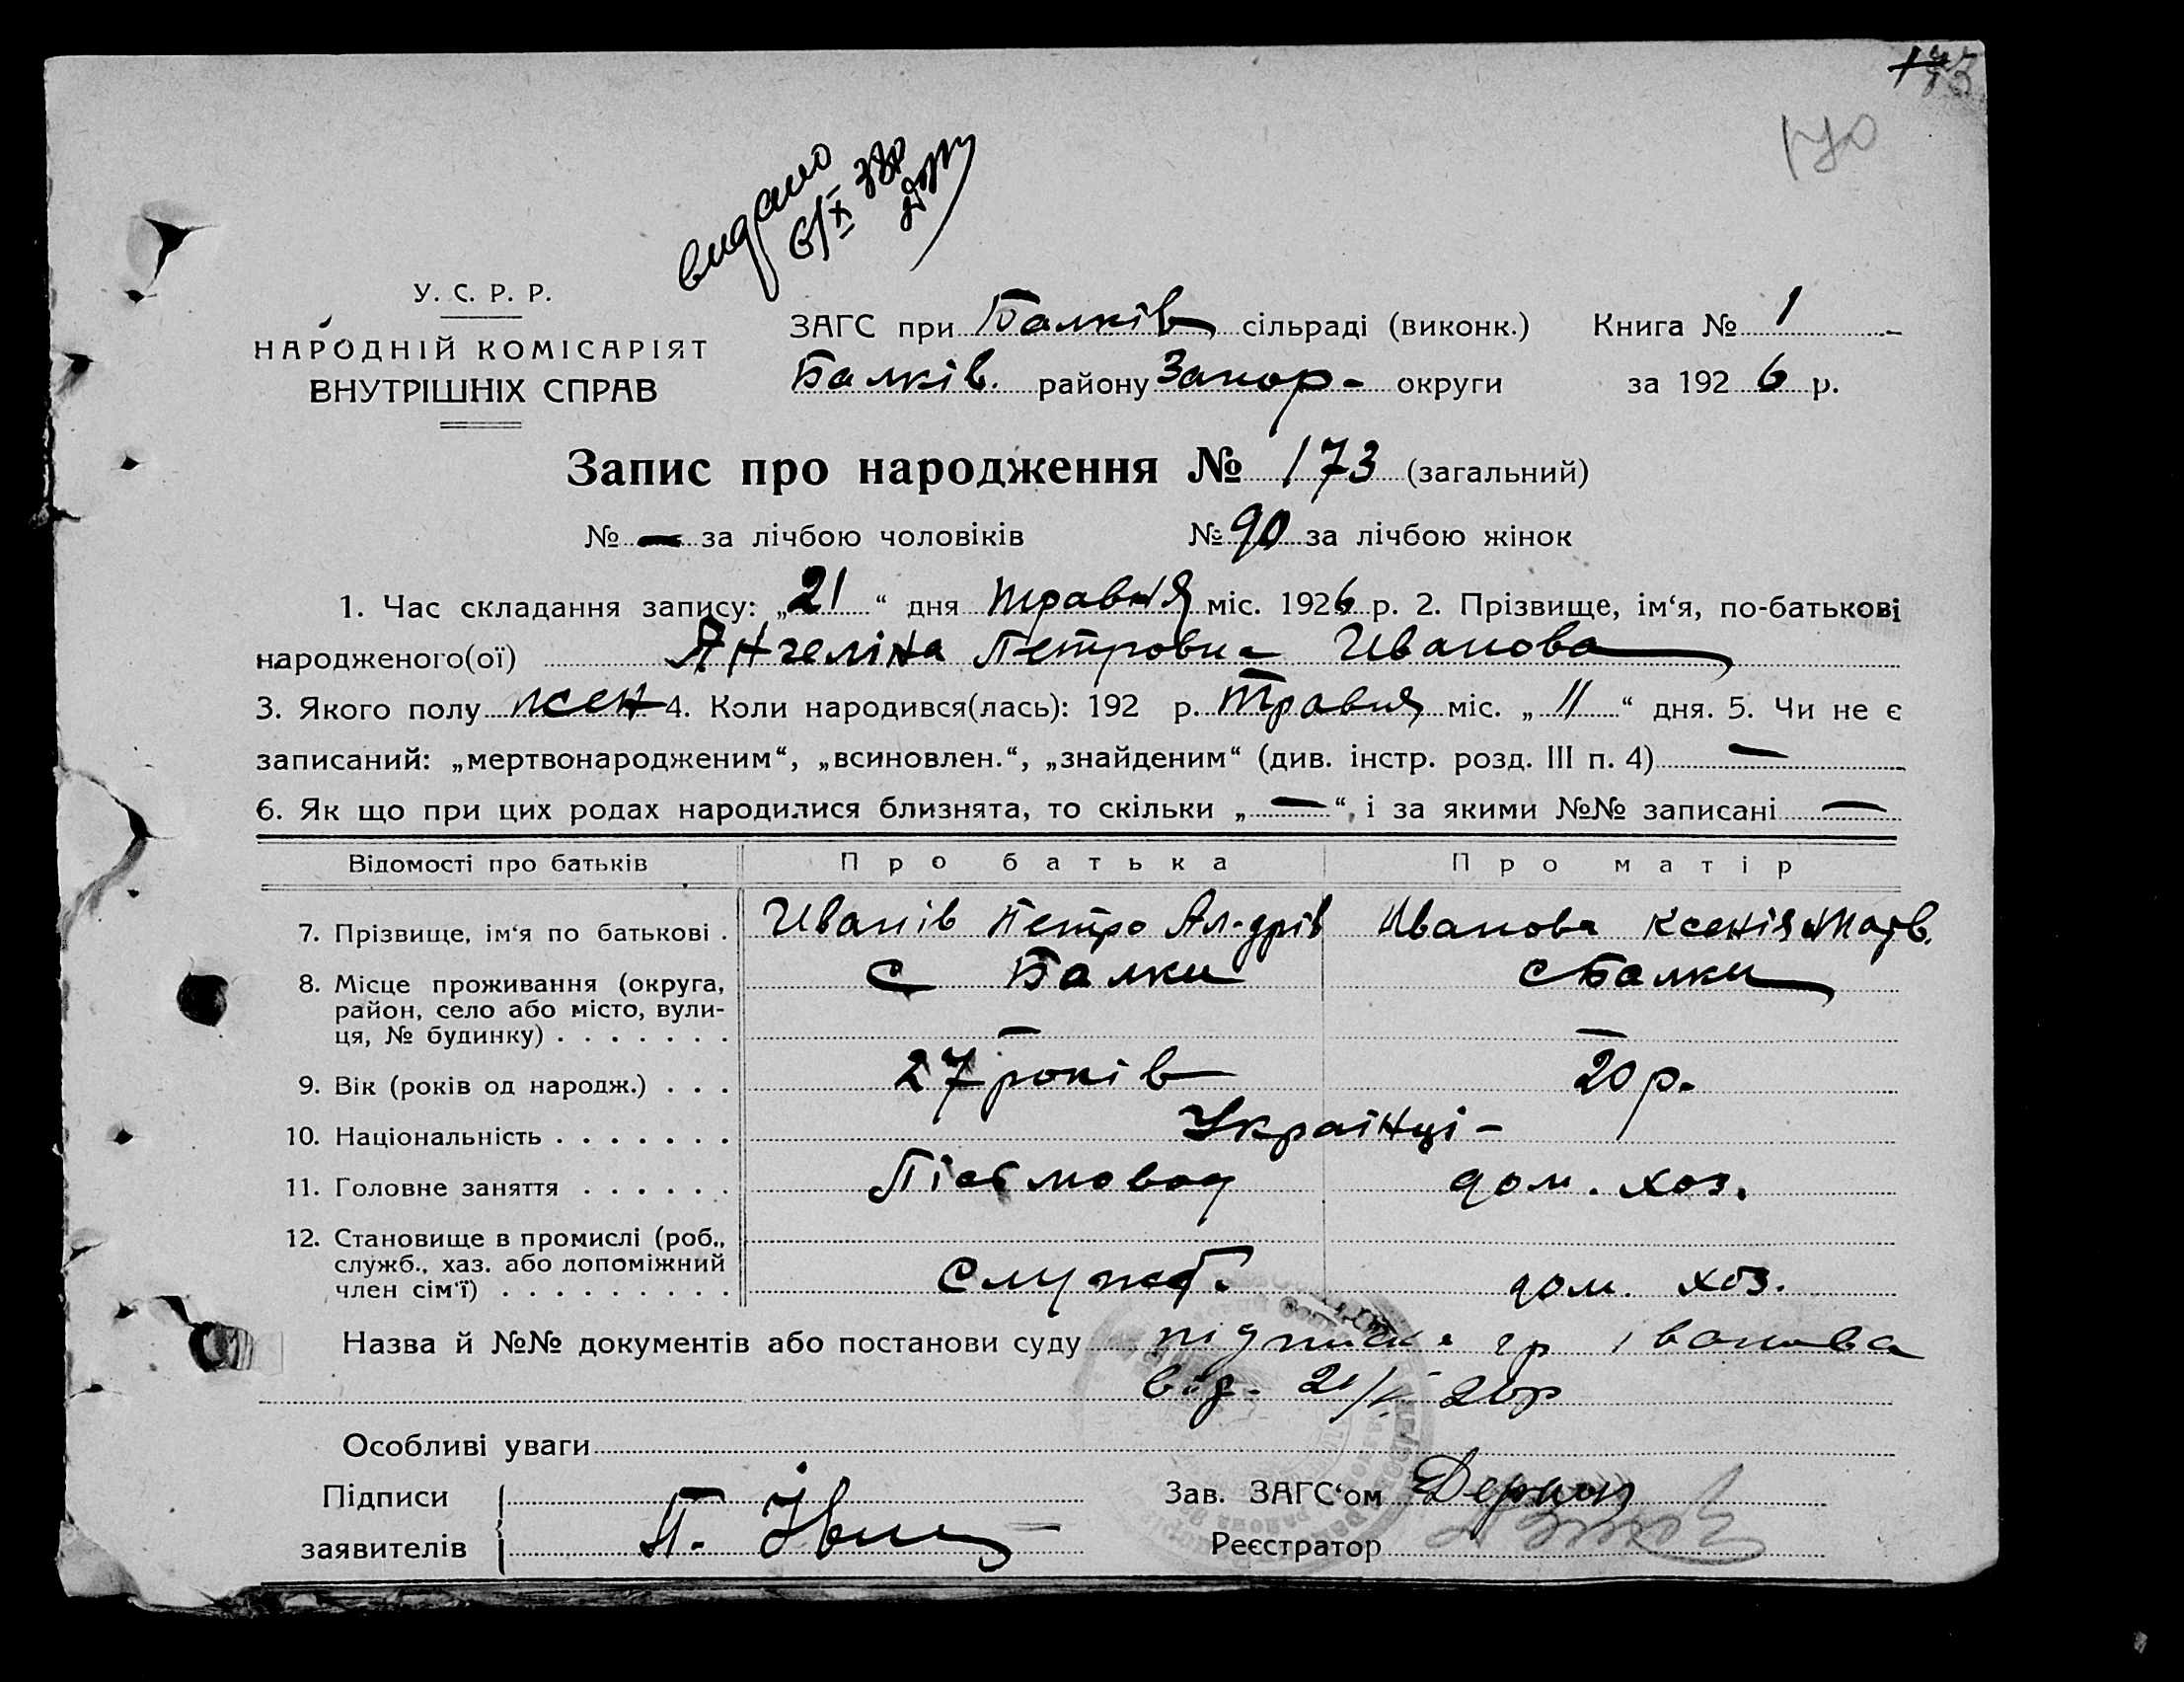 173
170
видано
6/X 38р
У. С. Р. Р.
НАРОДНІЙ КОМІСАРІЯТ
ВНУТРІШНІХ СПРАВ
ЗАГС при Балків сільраді (виконк.) Книга № 1
Балків. району Запор- округи за 1926 р.
Запис про народження № 173 (загальний)
№ — за лічбою чоловіків № 90 за лічбою жінок
1. Час складання запису: „21“ дня травня міс. 1926 р. 2. Прізвище, ім‘я, по-батькові
народженого(ої) Ангеліна Петровна Иванова
3. Якого полу жен 4. Коли народився(лась): 192 р. Травня міс. „11“ дня. 5. Чи не є
записаний: „мертвонародженим“, „всиновлен.“, „знайденим“ (див. інстр. розд. III п. 4) —
6. Як що при цих родах народилися близнята, то скільки „—“, і за якими №№ записані —
Відомості про батьків Про батька Про матір
7. Прізвище, ім‘я по батькові . Иванів Петро Ал-дрів Иванова Ксенія Матв.
8. Місце проживання (округа, с Балки с Балки
район, село або місто, вули-
ця, № будинку) . . . . . . . — —
9. Вік (років од народж.) . . . 27 років 20 р.
10. Національність . . . . . . . Українці -
11. Головне заняття . . . . . . Пісьмовод дом. хоз.
12. Становище в промислі (роб.,
служб., хаз. або допоміжний
член сім‘ї) . . . . . . . . . служб. дом. хоз.
Назва й №№ документів або постанови суду підписка гр Іванова
від. 21/V 26р
Особливі уваги
Підписи Зав. ЗАГС‘ом
заявителів П. Реєстратор